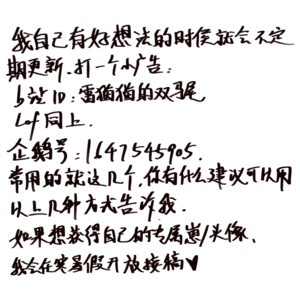 我自己有好想法的时候就会不定
期更新.打一个小广告:
b站ID:雷猫猫的双马尾
Lof同上.
企鹅号:1647545905.
常用的就这几个,你有什么建议可以用
以上几种方式告诉我.
如果想获得自己的专属崽/头像、
我会在寒暑假开放接稿♥